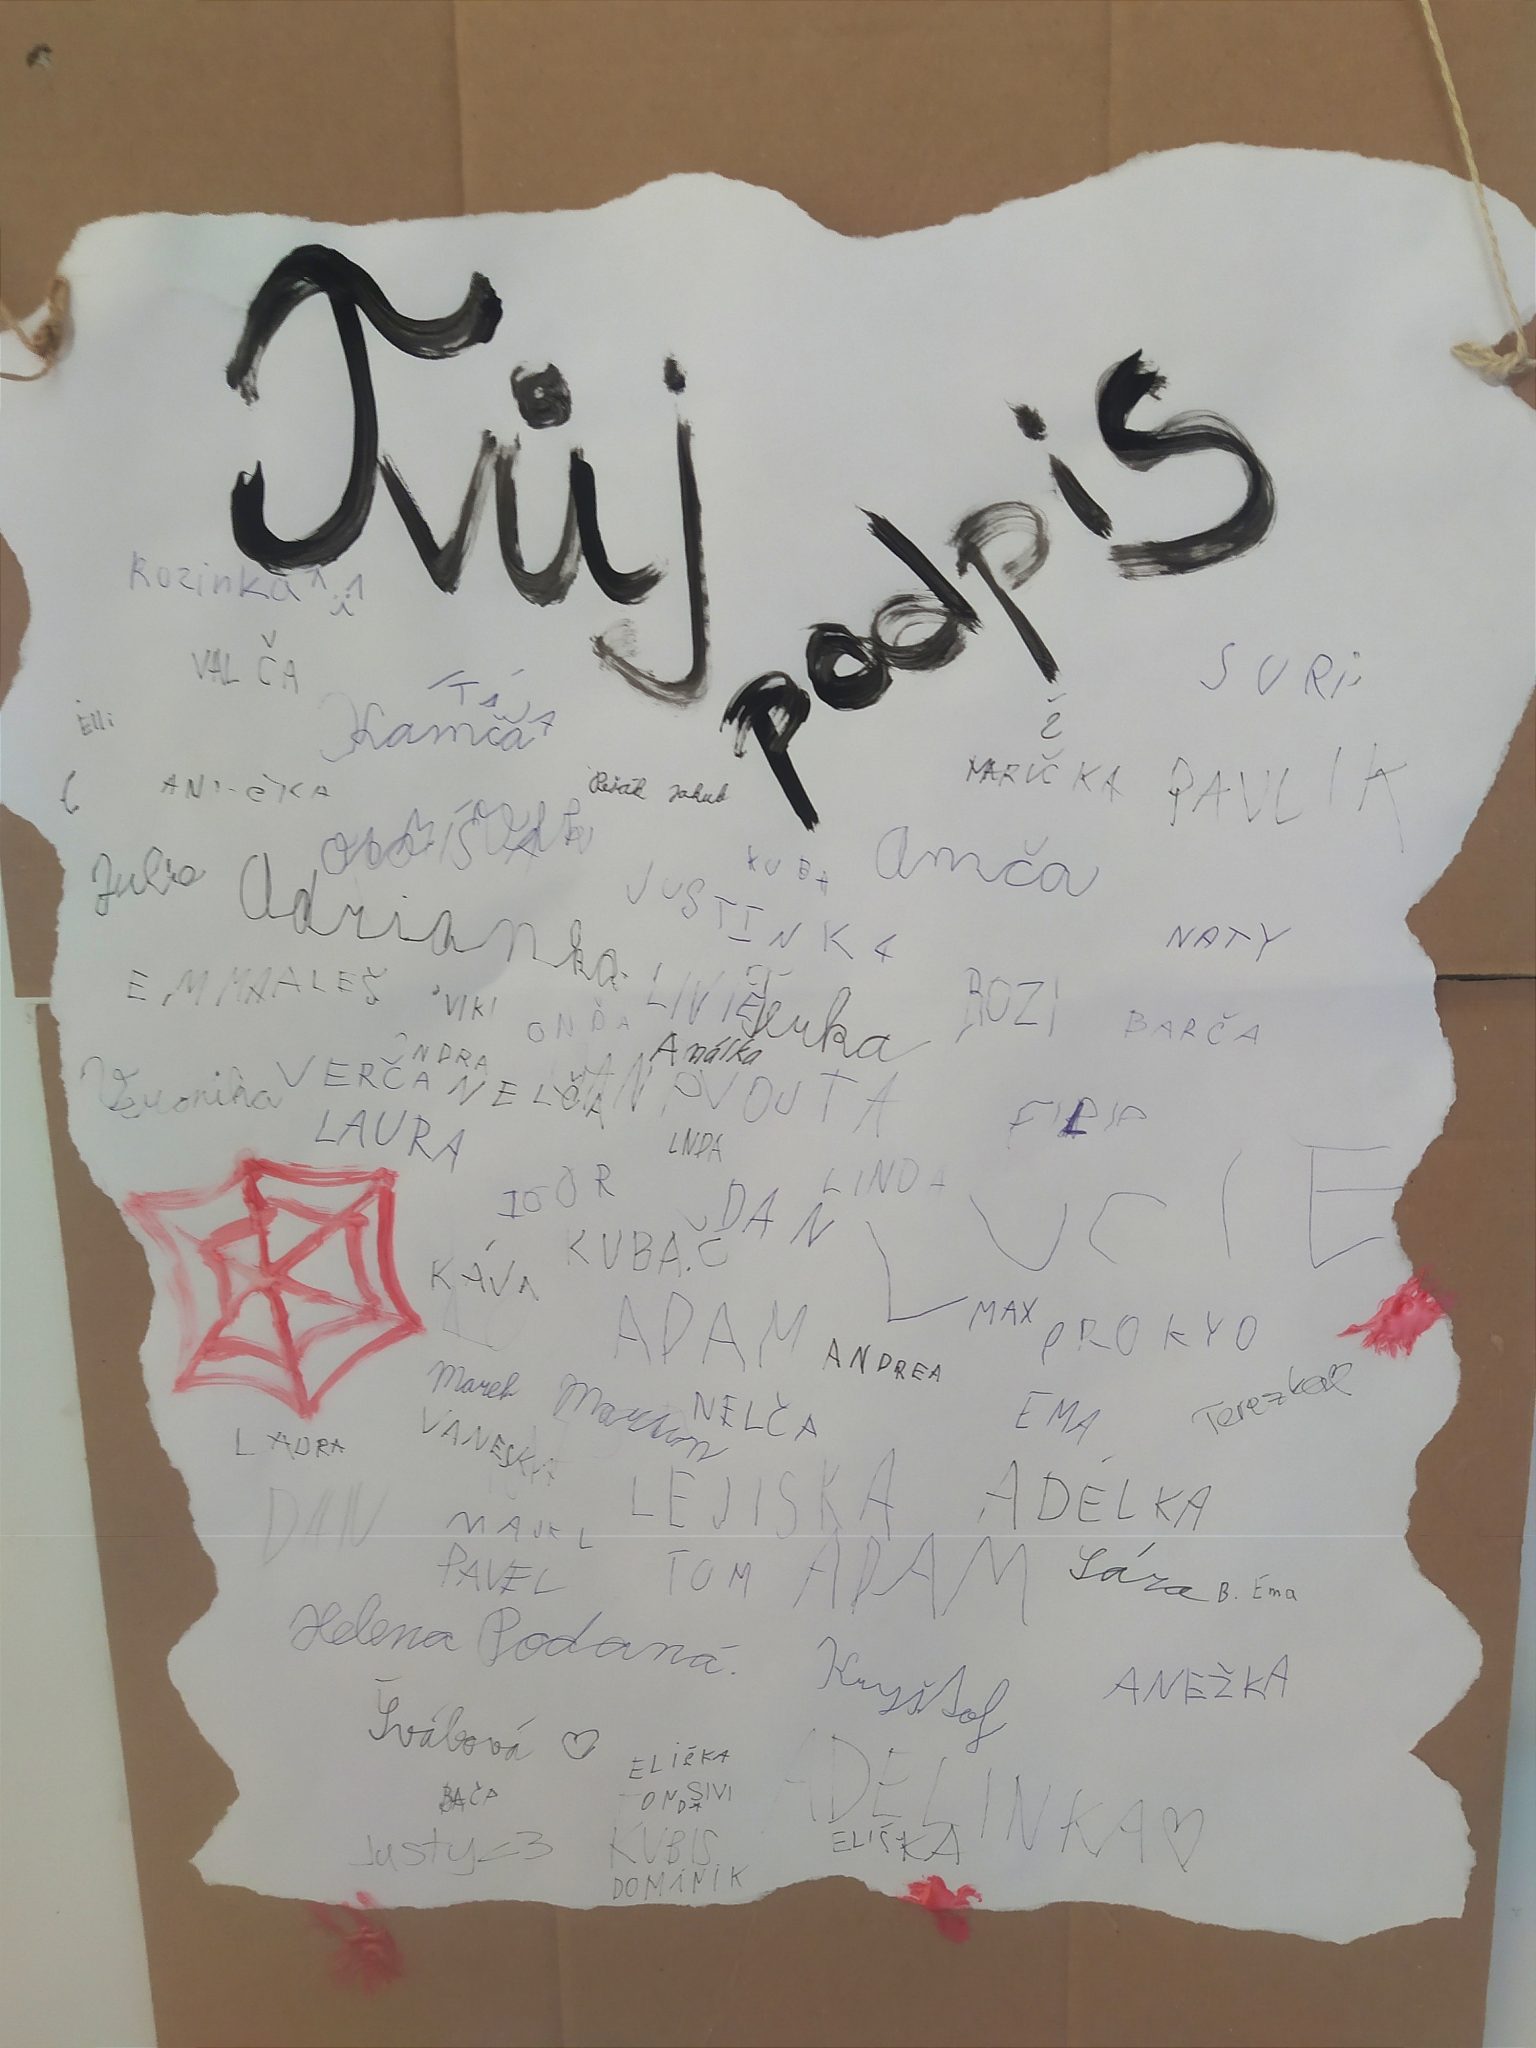 Tvůj
podpis
Rozinka
VALČA
TÁJA
SURi
Elli
Kamča
ANi-čKA
Pešák Jakub
MARUČKA
PAVLIK
Julie
Adrianka
KUBA
Amča
JUSTINKA
NATY
EMMA
ALEŠ
VIKI
ONĎA
LIVIE
Jerka
ROZI
BARČA
ONDRA
Amálka
Veronika
VERČA
NELČA
VOJTA
FILIP
LAURA
LINDA
IGOR
DAN
LINDA
LUCIE
KUBA.Č
KÁVA
ADAM
ANDREA
MAX
PROKYO
Marek
NELČA
EMA
Terezka
LADRA
VANESKA
LEJISKA
ADÉLKA
DAN
MAJKL
PAVEL
TOM
ADAM
Sára
B. Ema
Helena Podaná.
Kryštof
ANEŽKA
Švábová ♡
ELIŠKA
BAČA
TONDA
SIVI
ADELINKA♡
Justy<3
KUBIS
ELIŠKA
DOMINIK